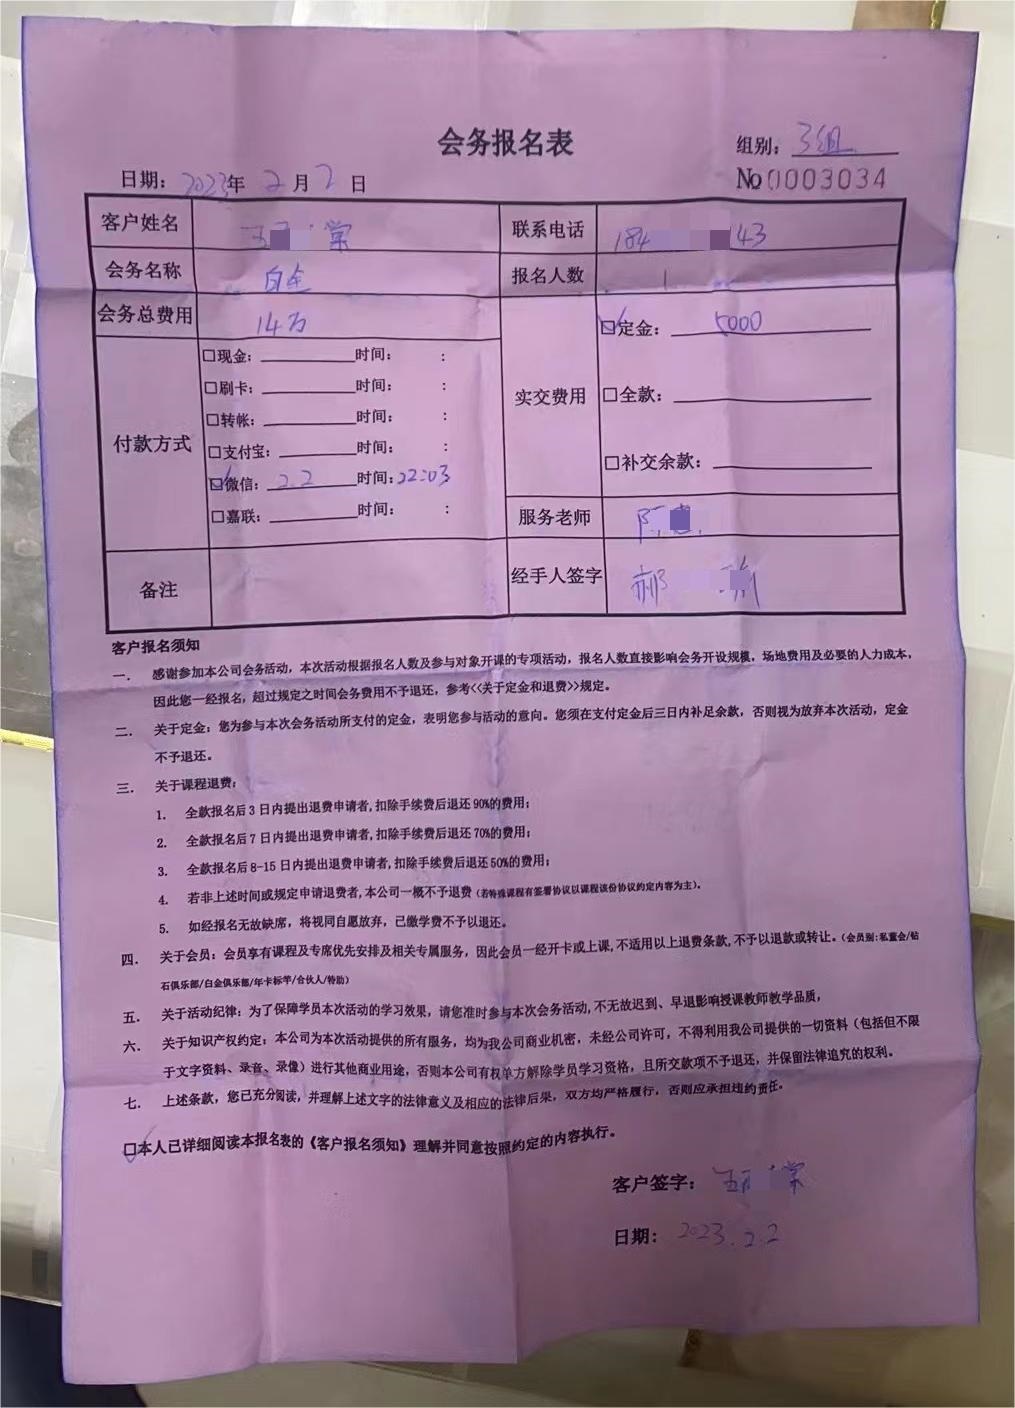 会务报名表
组别：3组
日期：2023年2月2日
No 0003034
客户姓名 王 棠 联系电话 184 143
会务名称 白金 报名人数 1
会务总费用 14万
实交费用
☑定金：5000
□全款：
□补交余款：
付款方式
□现金： 时间： ：
□刷卡： 时间： ：
□转帐： 时间： ：
□支付宝： 时间： ：
☑微信：2.2 时间：22:03
□嘉联： 时间： ：
服务老师 陈
备注
经手人签字 郝
客户报名须知
一. 感谢参加本公司会务活动，本次活动根据报名人数及参与对象开课的专项活动，报名人数直接影响会务开设规模，场地费用及必要的人力成本，
因此您一经报名，超过规定之时间会务费用不予退还，参考<<关于定金和退费>>规定。
二. 关于定金：您为参与本次会务活动所支付的定金，表明您参与活动的意向。您须在支付定金后三日内补足余款，否则视为放弃本次活动，定金
不予退还。
三. 关于课程退费：
1. 全款报名后3日内提出退费申请者,扣除手续费后退还90%的费用；
2. 全款报名后7日内提出退费申请者,扣除手续费后退还70%的费用；
3. 全款报名后8-15日内提出退费申请者,扣除手续费后退还50%的费用；
4. 若非上述时间或规定申请退费者,本公司一概不予退费（若特殊课程有签署协议以课程该份协议约定内容为主）。
5. 如经报名无故缺席，将视同自愿放弃，已缴学费不予以退还。
四. 关于会员：会员享有课程及专席优先安排及相关专属服务，因此会员一经开卡或上课,不适用以上退费条款,不予以退款或转让。（会员别:私董会/钻
石俱乐部/白金俱乐部/年卡标竿/合伙人/特助）
五. 关于活动纪律：为了保障学员本次活动的学习效果，请您准时参与本次会务活动,不无故迟到、早退影响授课教师教学品质，
六. 关于知识产权约定：本公司为本次活动提供的所有服务，均为我公司商业机密，未经公司许可，不得利用我公司提供的一切资料（包括但不限
于文字资料、录音、录像）进行其他商业用途，否则本公司有权单方解除学员学习资格，且所交款项不予退还，并保留法律追究的权利。
七. 上述条款，您已充分阅读，并理解上述文字的法律意义及相应的法律后果，双方均严格履行，否则应承担违约责任。
☑本人已详细阅读本报名表的《客户报名须知》理解并同意按照约定的内容执行。
客户签字：王 棠
日期：2023.2.2